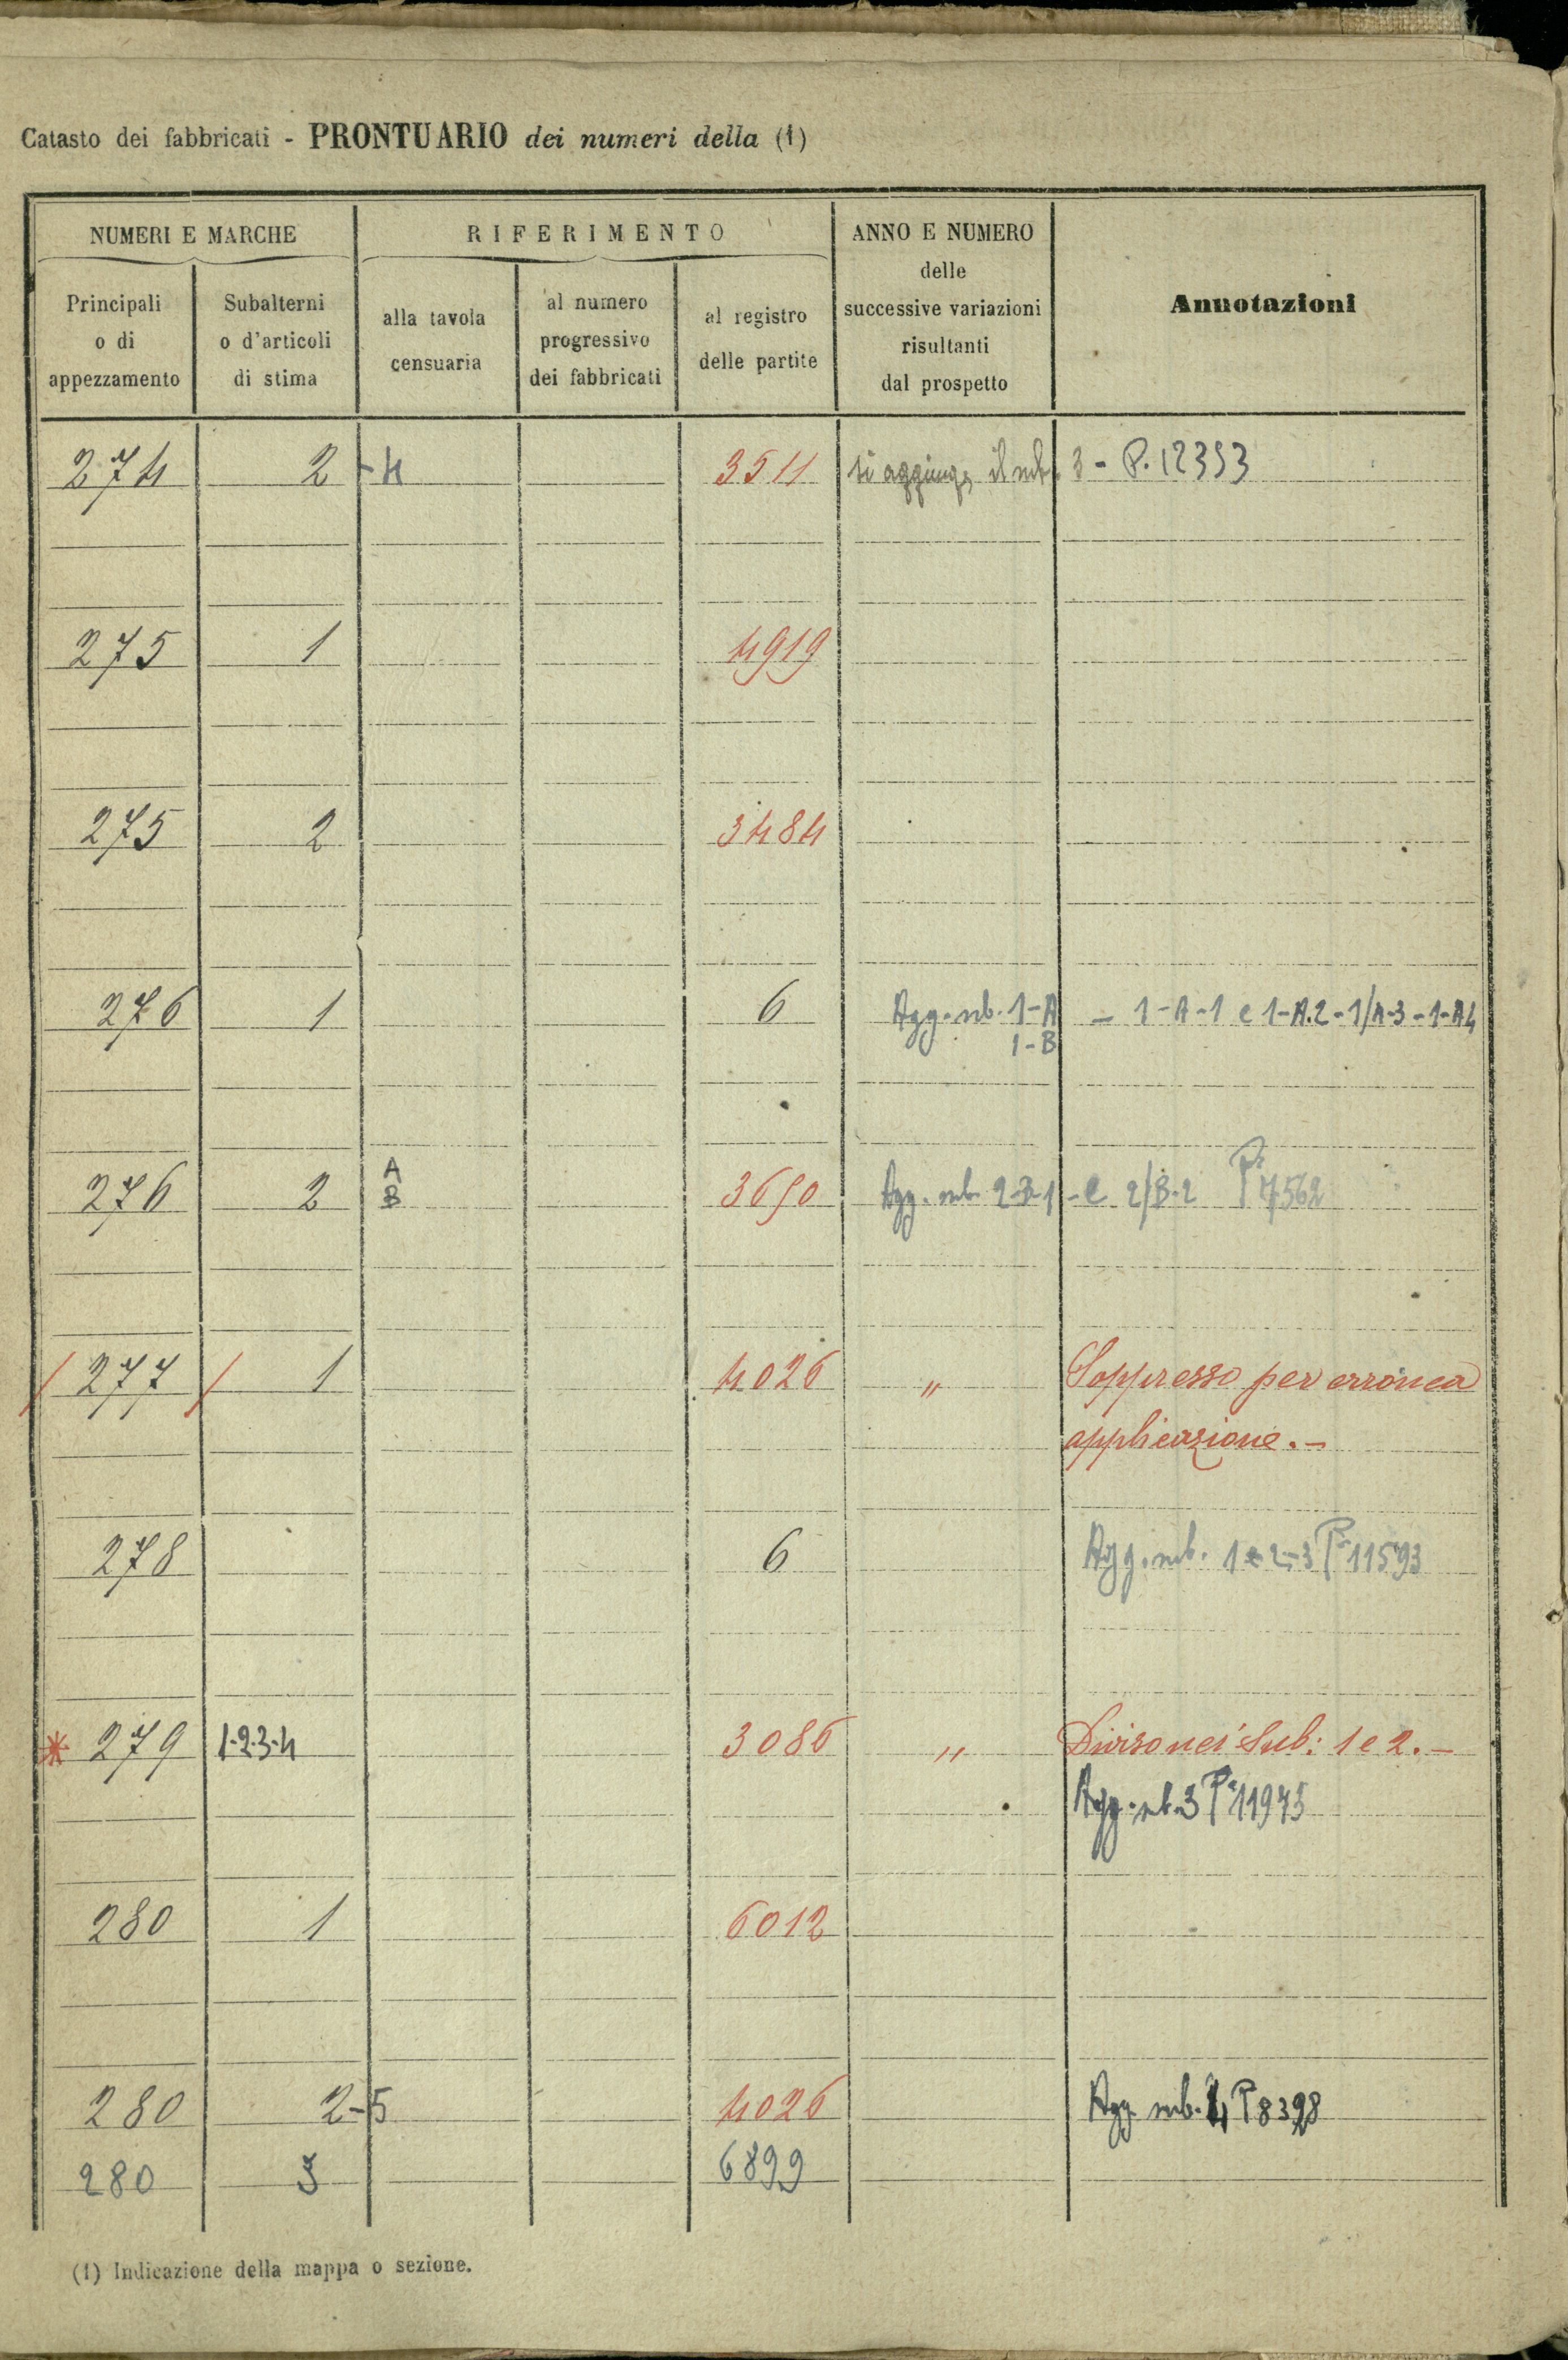 Catasto dei fabbricati - PRONTUARIO dei numeri della (1)
NUMERI E MARCHE
RIFERIMENTO
ANNO E NUMERO
delle
successive variazioni
risultanti
dal prospetto
Annotazioni
Principali
o di
appezzamento
Subalterni
o d'articoli
di stima
alla tavola
censuaria
al numero
progressivo
dei fabbricati
al registro
delle partite
274 2 - 4 3511 si aggiunge il sub. 3 - P. 12393
275 1 4919
275 2 3484
276 1 6 Agg. sub. 1-A - 1-A-1 e 1-A.2 - 1/A-3 - 1-A4
1-B
276 2 A 3690 Agg. sub. 2-B-1 - e 2/B.2 Pª 7562
B
277 1 4026 " Soppresso per erronea
applicazione. -
278 6 Agg. sub. 1 e 2-3 Pª 11593
* 279 1-2-3-4 3086 " Diviso nei Sub: 1 e 2. -
Agg. sub. 3 Pª 11975
280 1 6012
280 2-5 4026 Agg. sub. 4 P 8398
280 3 6899
(1) Indicazione della mappa o sezione.